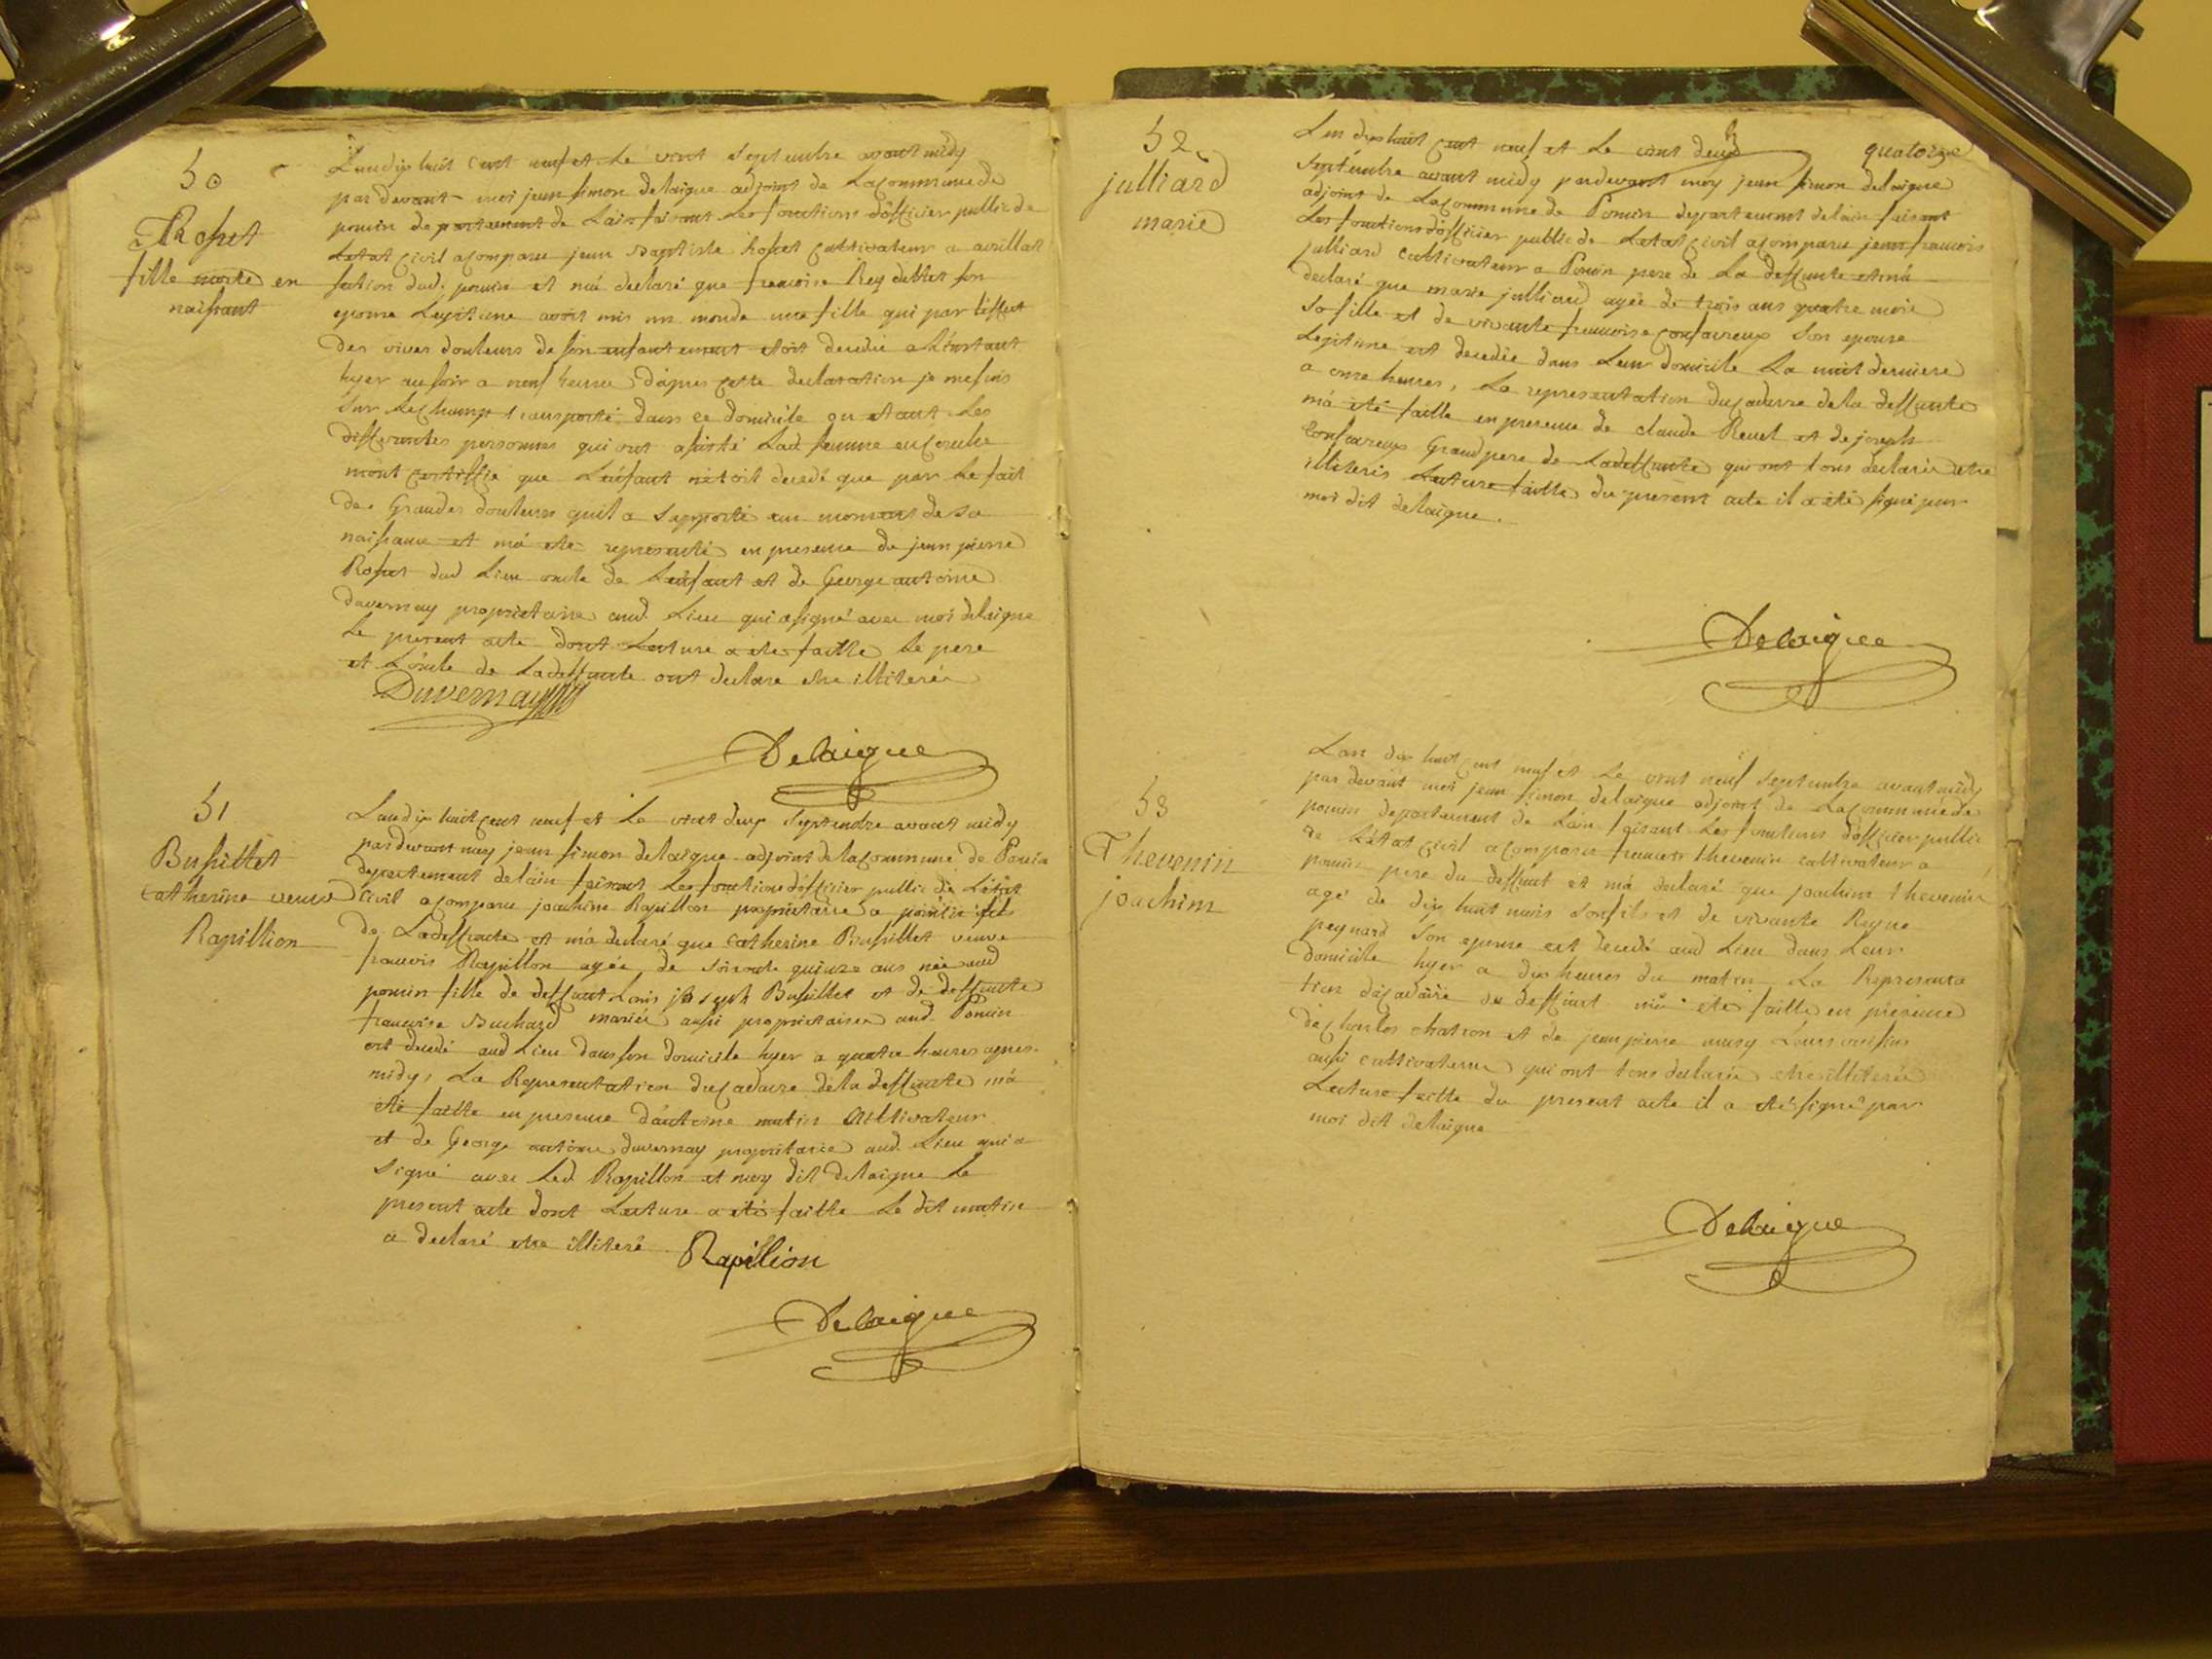 50
Rosset
fille morte en
naissant
Landix huit cent neuf et le vint septembre avant midy
par devant moi jean simon delaigue adjoint de la commune de
poncin departement de Lain faisant les fonctions d'officier public de
Letat civil a comparu jean Baptiste Rosset cultivateur a avrillat
section dud. poncin et m'a declaré que francoise Rey dettet son
epouse Legitime avoit mis au monde une fille qui par l'effect
des vives douleurs de son enfantement etoit decedée a l'instant
hyer au soir a neuf heures d'apres cette declaration je me suis
sur le champ transporté dans ce domicile ou etant les
differantes personnes qui ont assisté lad. femme en couche
m'ont certiffié que L'enfant n'etoit decedé que par le fait
des Grandes douleurs qu'il a supporté au moment de sa
naissance et m'a eté representé en presence de jean pierre
Rosset dud Lieu oncle de L'enfant et de George antoine
duvernay proprietaire aud. Lieu qui a signé avec moi delaigue
le present acte dont Lecture a eté faitte le pere
et L'oncle de la deffunte ont declaré etre illiterés
Duvernay
Delaigue
51
Bussillet
catherine veuve
Rapillion
Landix huit cent neuf et le vint deux septembre avant midy
par devant moy jean simon delaigue adjoint de la commune de Poncin
departement de lain faisant les fonctions d'officier public de L'état
civil a comparu joachim Rapillon proprietaire a poncin fils
de la deffunte et m'a declaré que catherine Bussillet veuve
francois Rapillon agée de soixante quinze ans née aud
poncin fille de deffunt Louis joseph Bussillet et de deffunte
francoise Buchard mariés aussi proprietaires aud. Poncin
est decedé aud Lieu dans son domicile hyer a quatre heures apres
midy, La Representation du cadavre de la deffunte m'a
eté faitte en presence d'antoine matin cultivateur
et de George antoine duvernay proprietaire aud. Lieu qui a
signé avec Led Rapillon et moy dit delaigue le
present acte dont Lecture a eté faitte Le dit matin
a declaré etre illiteré
Rapillion
Delaigue
quatorze
52
julliard
marie
Lan dix huit cent neuf et le vint deux
septembre avant midy pardevant moy jean simon delaigue
adjoint de la commune de Poncin departement de lain faisant
les fonctions d'officier public de Letat civil a comparu jean francois
julliard cultivateur a Poncin pere de la deffunte et m'a
declaré que marie julliard agée de trois ans quatre mois
sa fille et de vivante francoise confavreux son epouse
Legitime est decedée dans leur domicile la nuit derniere
a onze heures, La representation du cadavre de la deffunte
m'a eté faitte en presence de claude Revel et de joseph
confavreux Grand pere de la deffunte qui ont tous declarés etre
illiterés Lecture faitte du present acte il a eté signé par
moi dit delaigue.
Delaigue
53
Thevenin
joachim
Lan dix huit cent neuf et le vint neuf septembre avant midy
par devant moi jean simon delaigue adjoint de la commune de
poncin departement de Lain faisant les fonctions d'officier public
de L'état civil a comparu francois thevenin cultivateur a
poncin pere du deffunt et m'a declaré que joachim thevenin
agé de dix huit mois son fils et de vivante Reyne
peynard son epouse est decedé aud Lieu dans Leur
domicile hyer a dix heures du matin, La Representa
tion du cadavre du deffunt m'a eté faitte en presence
de charles chatron et de jean pierre Leurs voisins
aussi cultivateurs qui ont tous declarés etre illiterés
Lecture faitte du present acte il a eté signé par
moi dit delaigue
Delaigue